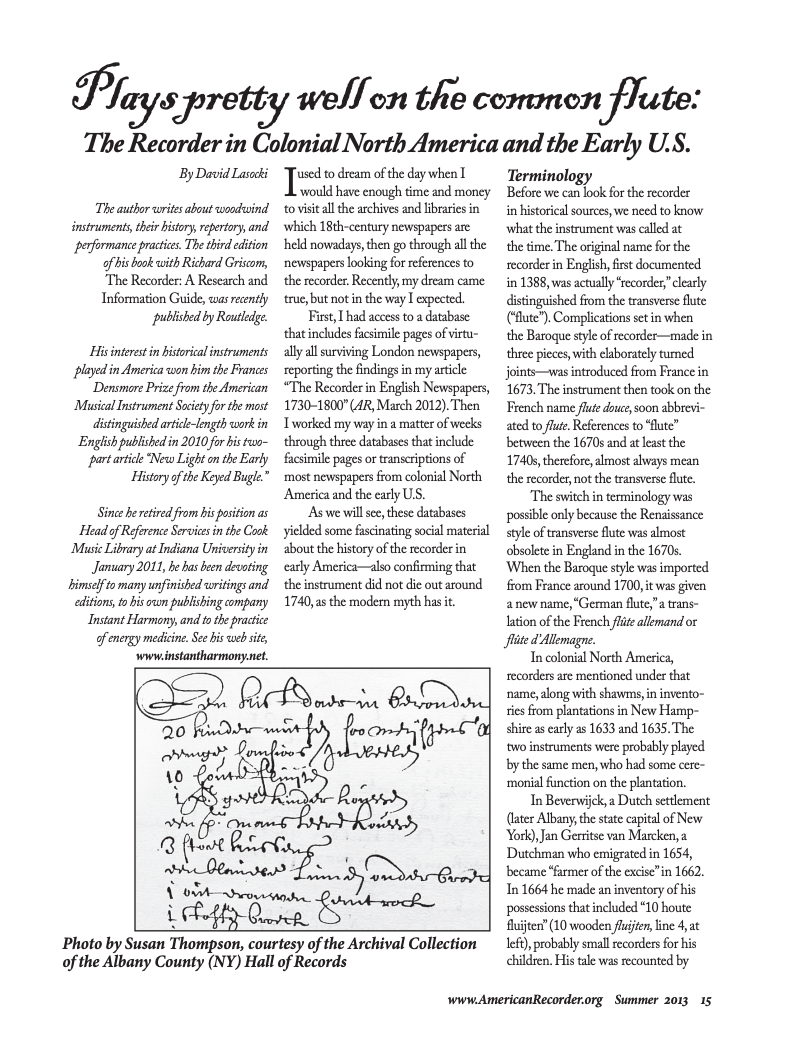 Plays pretty well on the common flute:
The Recorder in Colonial North America and the Early U.S.
By David Lasocki
The author writes about woodwind
instruments, their history, repertory, and
performance practices. The third edition
of his book with Richard Griscom,
The Recorder: A Research and
Information Guide, was recently
published by Routledge.
His interest in historical instruments
played in America won him the Frances
Densmore Prize from the American
Musical Instrument Society for the most
distinguished article-length work in
English published in 2010 for his two-
part article “New Light on the Early
History of the Keyed Bugle.”
Since he retired from his position as
Head of Reference Services in the Cook
Music Library at Indiana University in
January 2011, he has been devoting
himself to many unfinished writings and
editions, to his own publishing company
Instant Harmony, and to the practice
of energy medicine. See his web site,
www.instantharmony.net.
I used to dream of the day when I
would have enough time and money
to visit all the archives and libraries in
which 18th-century newspapers are
held nowadays, then go through all the
newspapers looking for references to
the recorder. Recently, my dream came
true, but not in the way I expected.
First, I had access to a database
that includes facsimile pages of virtu-
ally all surviving London newspapers,
reporting the findings in my article
“The Recorder in English Newspapers,
1730–1800” (AR, March 2012). Then
I worked my way in a matter of weeks
through three databases that include
facsimile pages or transcriptions of
most newspapers from colonial North
America and the early U.S.
As we will see, these databases
yielded some fascinating social material
about the history of the recorder in
early America—also confirming that
the instrument did not die out around
1740, as the modern myth has it.
20 kinder
10 houte fluijten
3
1
1
Photo by Susan Thompson, courtesy of the Archival Collection
of the Albany County (NY) Hall of Records
Terminology
Before we can look for the recorder
in historical sources, we need to know
what the instrument was called at
the time. The original name for the
recorder in English, first documented
in 1388, was actually “recorder,” clearly
distinguished from the transverse flute
(“flute”). Complications set in when
the Baroque style of recorder—made in
three pieces, with elaborately turned
joints—was introduced from France in
1673. The instrument then took on the
French name flute douce, soon abbrevi-
ated to flute. References to “flute”
between the 1670s and at least the
1740s, therefore, almost always mean
the recorder, not the transverse flute.
The switch in terminology was
possible only because the Renaissance
style of transverse flute was almost
obsolete in England in the 1670s.
When the Baroque style was imported
from France around 1700, it was given
a new name, “German flute,” a trans-
lation of the French flûte allemand or
flûte d’Allemagne.
In colonial North America,
recorders are mentioned under that
name, along with shawms, in invento-
ries from plantations in New Hamp-
shire as early as 1633 and 1635. The
two instruments were probably played
by the same men, who had some cere-
monial function on the plantation.
In Beverwijck, a Dutch settlement
(later Albany, the state capital of New
York), Jan Gerritse van Marcken, a
Dutchman who emigrated in 1654,
became “farmer of the excise” in 1662.
In 1664 he made an inventory of his
possessions that included “10 houte
fluijten” (10 wooden fluijten, line 4, at
left), probably small recorders for his
children. His tale was recounted by
www.AmericanRecorder.org Summer 2013 15